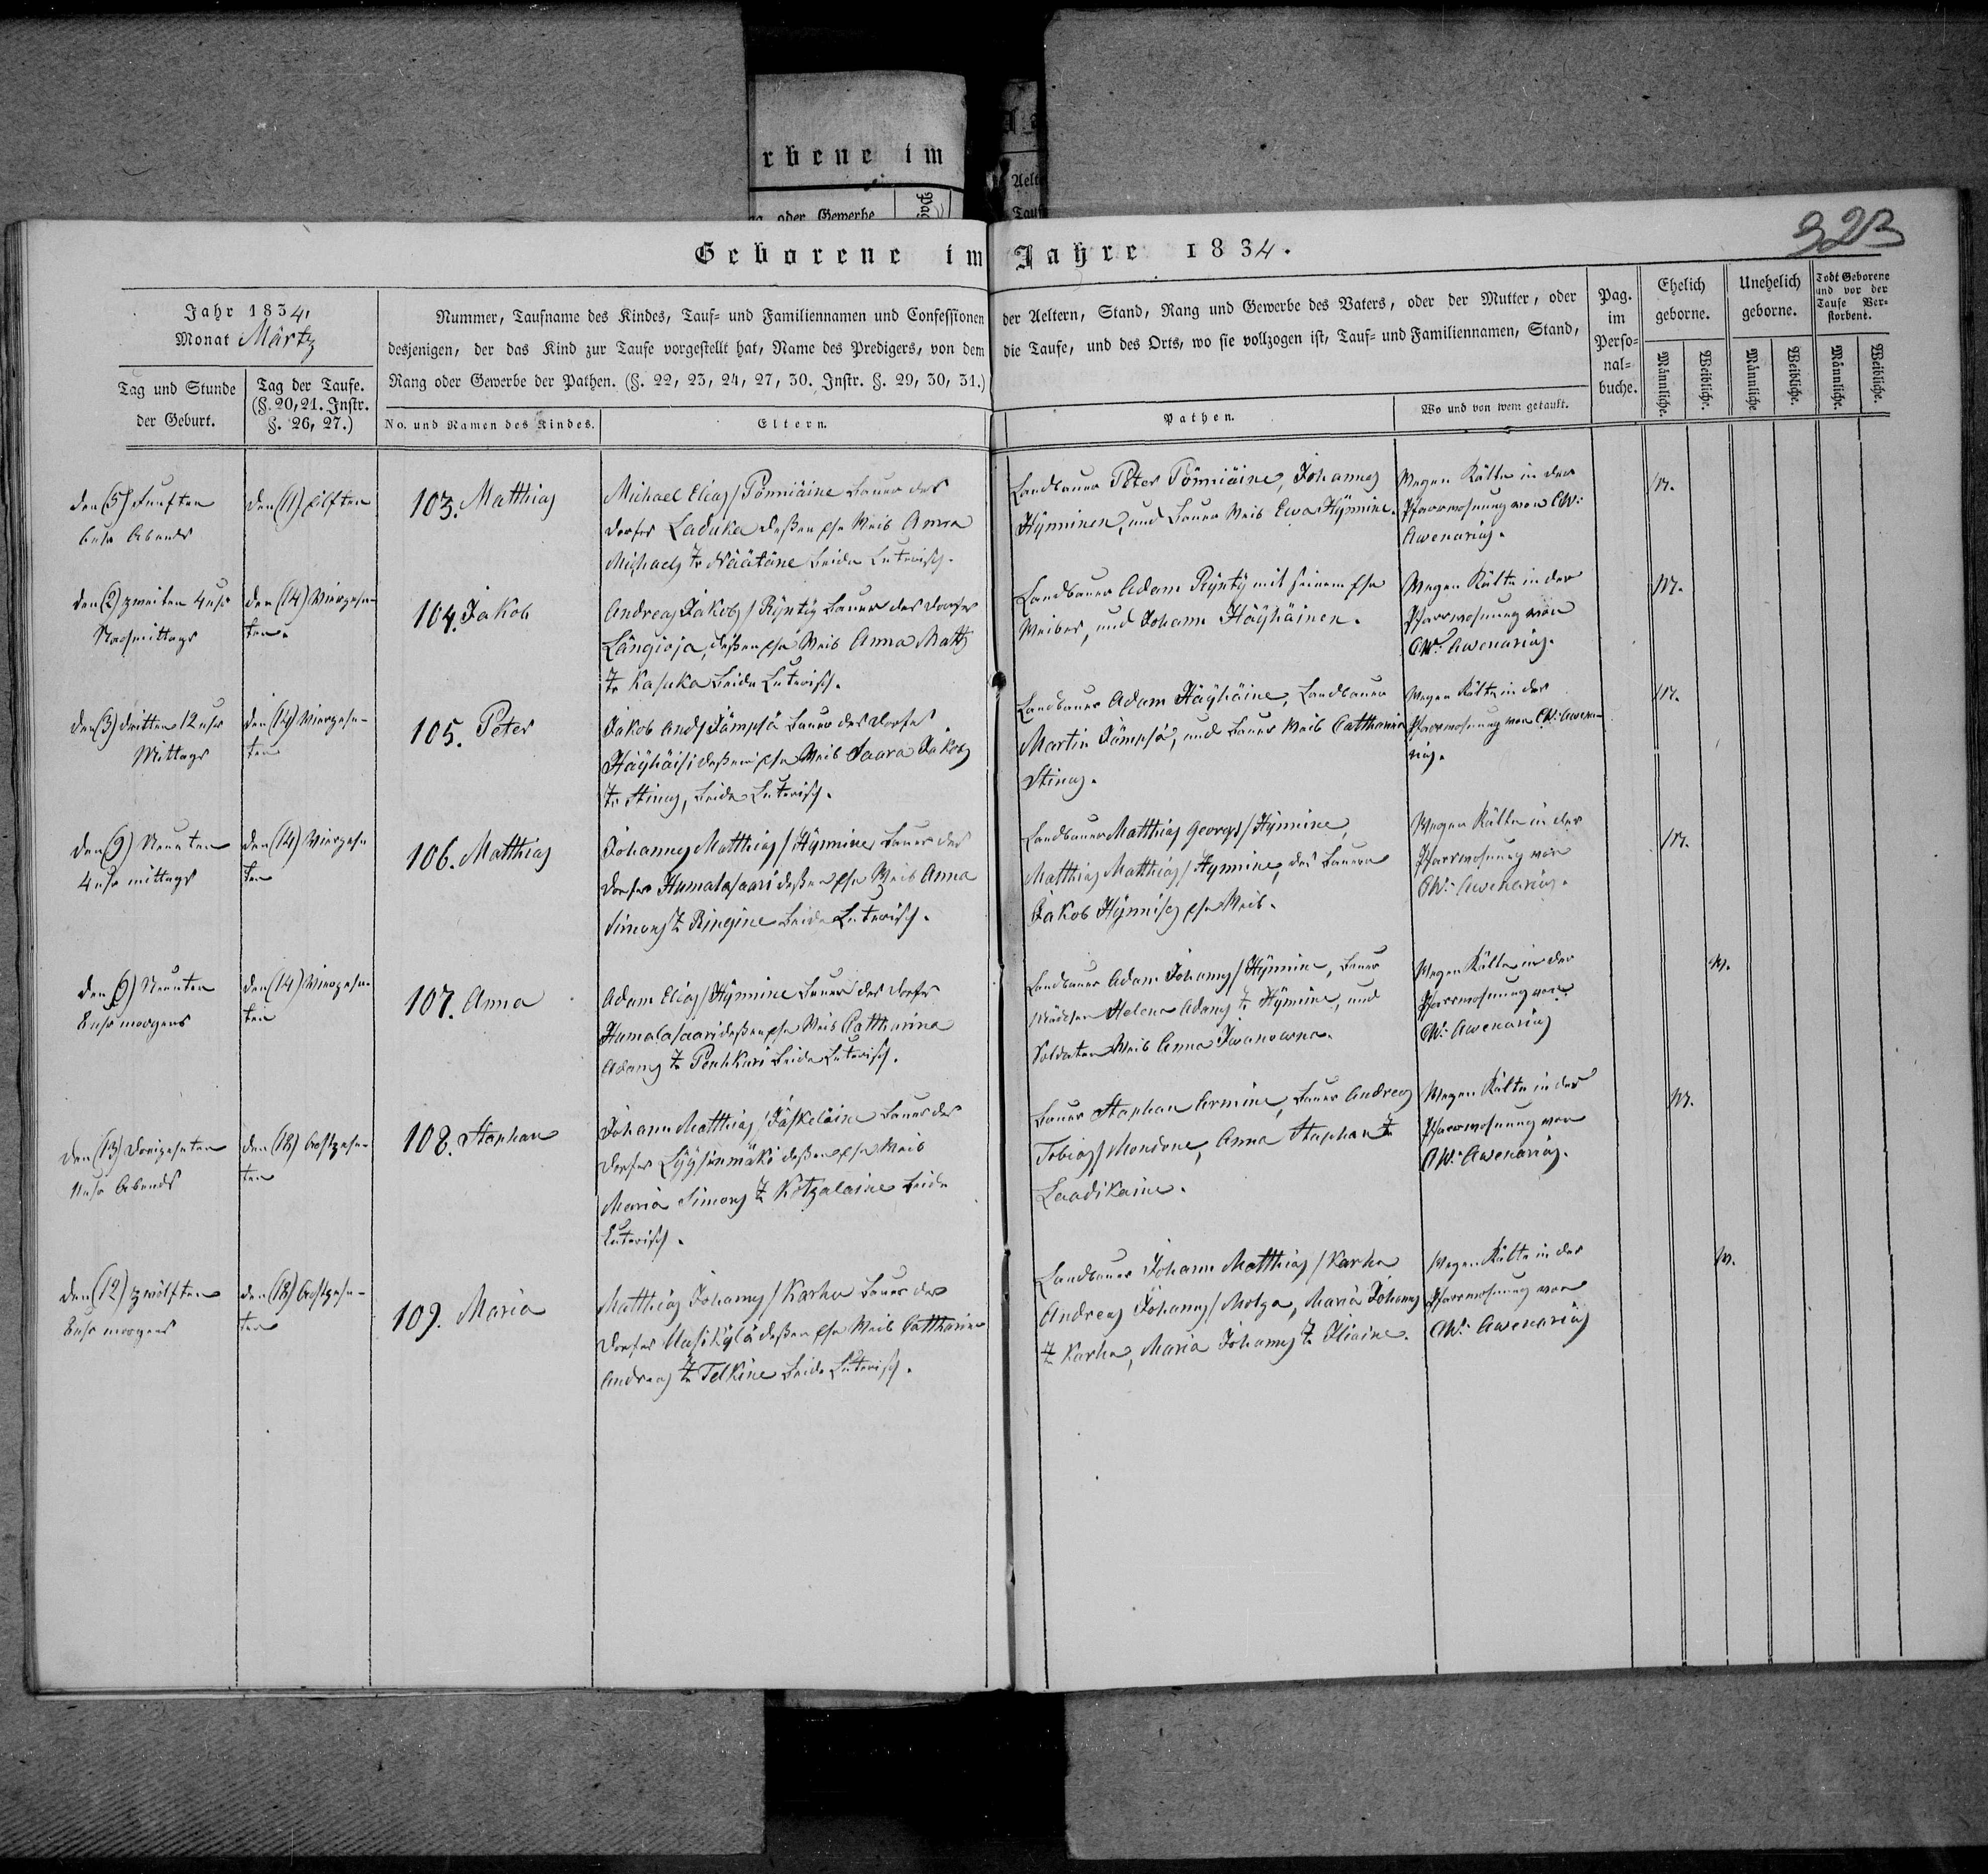 rbene im
oder Gewerbe
Aelt
Tauf
323
Geborene im Jahre 1834.
Jahr 1834,
Monat Märtz
Tag und Stunde
der Geburt.
Tag der Taufe.
(§. 20, 21. Instr.
§. 26, 27.)
Nummer, Taufname des Kindes, Tauf- und Familiennamen und Confessionen der Aeltern, Stand, Rang und Gewerbe des Vaters, oder der Mutter, oder
desjenigen, der das Kind zur Taufe vorgestellt hat, Name des Predigers, von dem die Taufe, und des Orts, wo sie vollzogen ist, Tauf- und Familiennamen, Stand,
Rang oder Gewerbe der Pathen. (§. 22, 23, 24, 27, 30. Instr. §. 29, 30, 31.)
No. und Namen des Kindes.
Eltern.
Pathen.
Wo und von wem getauft.
Pag.
im
Perso-
nal-
buche.
Ehelich
geborne.
Unehelich
geborne.
Todt Geborene
und vor der
Taufe Ver-
storbene.
Männliche.
Weibliche.
Männliche
Weibliche.
Männliche.
Weibliche.
den (5) Funften
6 uhr Abends
den (11) Eilften
103. Matthias
Michael Elias/ Pönniäine Bauer des
Dorfes Laduka deßen Ehe Weib Anna
Michaels tr Näätäne beide Luterisch.
Landbauer Peter Pönniäine, Johannes
Hÿnninen, und Bauer Weib Ewa Hÿnnine.
Wegen Kälte in der
Pfarrwohnung von CW:
Awenarius.
M.
den (2) zweiten 4 uhr
Nachmittags
den (14) Vierzehn-
ten.
104. Jakob
Andreas Jakobs/ Rÿntÿ Bauer des Dorfes
Längioja, deßen Ehe Weib Anna Matts
tr Kasuka beide Luterisch.
Landbauer Adam Rÿntÿ mit seinem Ehe
Weibes, und Johann Häÿhäinen.
Wegen Kälte in der
Pfarrwohnung von
CW: Awenarius.
M.
den (3) dritten 12 uhr
Mittags
den (14) Vierzehn-
ten
105. Peter
Jakob And/ Jämpsä Bauer des Dorfes
Häÿhäisi deßen Ehe Weib Saara Jakobs
tr Stinas, beide Luterisch.
Landbauer Adam Häÿhäine, Landbauer
Martin Jämpsä, und Bauer Weib Catharina
Stinas.
Wegen Kälte in der
Pfarrwohnung von CW: Awena-
rius.
M.
den (9) Neunten
4 uhr mittags
den (14) Vierzehn
ten
106. Matthias
Johannes Matthias/ Hÿnnine Bauer des
Dorfes Humalasaari deßen Ehe Weib Anna
Simons tr Ringine beide Luterisch.
Landbauer Matthias Georgs/ Hÿnnine,
Matthias Matthias/ Hÿnnine, des Bauern
Jakob Hÿnnises Ehe Weib.
Wegen Kälte in der
Pfarrwohnung von
CW: Awenarius.
M.
den (9) Neunten
8 uhr morgens
den (14) Vierzehn-
ten
107. Anna
Adam Elias/ Hÿnnine Bauer des Dorfes
Humalasaari deßen Ehe Weib Catharina
Adams tr Penkkuri beide Luterisch.
Landbauer Adam Johanns/ Hÿnnine, Bauer
Mädchen Helena Adams tr Hÿnnine, und
Soldaten Weib Anna Iwanowna.
Wegen Kälte in der
Pfarrwohnung von
CW: Awenarius
W.
den (13) Dreizehnten
11 uhr Abends
den (18) Achtzehn-
ten
108. Staphan
Johann Matthias/ Jäskeläine Bauer des
Dorfes Lÿÿsinmäki deßen Ehe Weib
Maria Simons tr Kotzalaine beide
Luterisch.
Bauer Staphan Armine, Bauer Andreas
Tobias/ Mondone, Anna Staphan tr
Laadikaine.
Wegen Kälte in der
Pfarrwohnung von
CW: Awenarius.
M.
den (12) zwölften
8 uhr morgens
den (18) Achtzehn-
ten
109. Maria
Matthias Johanns/ Karhu Bauer des
Dorfes Uusikÿlä deßen Ehe Weib Catharina
Andreas tr Telkine beide Luterisch.
Landbauer Johann Matthias/ Karhu
Andreas Johanns/ Molga, Maria Johanns
tr Karhu, Maria Johanns tr Iliaine.
Wegen Kälte in der
Pfarrwohnung von
CW: Awenarius
W.